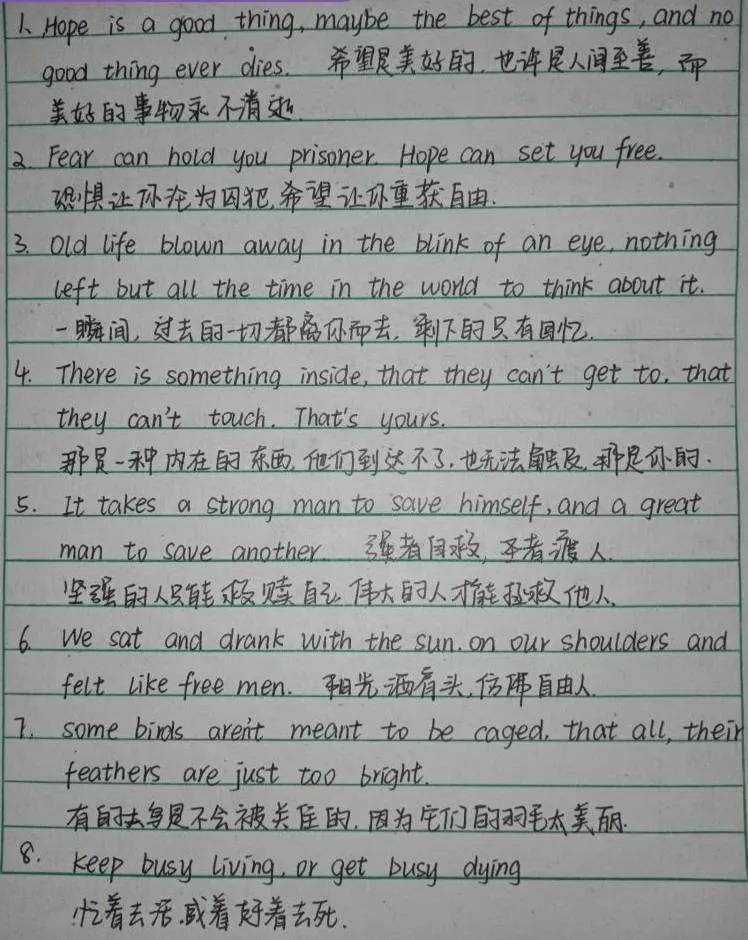 1. Hope is a good thing, maybe the best of things, and no
good thing ever dies. 希望是美好的, 也许是人间至善, 而
美好的事物永不消逝.
2. Fear can hold you prisoner. Hope can set you free.
恐惧让你沦为囚犯, 希望让你重获自由.
3. Old life blown away in the blink of an eye, nothing
left but all the time in the world to think about it.
一瞬间, 过去的一切都离你而去, 剩下的只有回忆.
4. There is something inside, that they can't get to, that
they can't touch. That's yours.
那是一种内在的东西, 他们到达不了, 也无法触及, 那是你的.
5. It takes a strong man to save himself, and a great
man to save another. 强者自救, 圣者渡人.
坚强的人只能救赎自己, 伟大的人才能拯救他人.
6. We sat and drank with the sun. on our shoulders and
felt like free men. 阳光洒肩头, 仿佛自由人.
7. some birds aren't meant to be caged, that all, their
feathers are just too bright.
有的鸟是不会被关住的, 因为它们的羽毛太美丽.
8. keep busy living, or get busy dying
忙着去活, 或着好着去死.